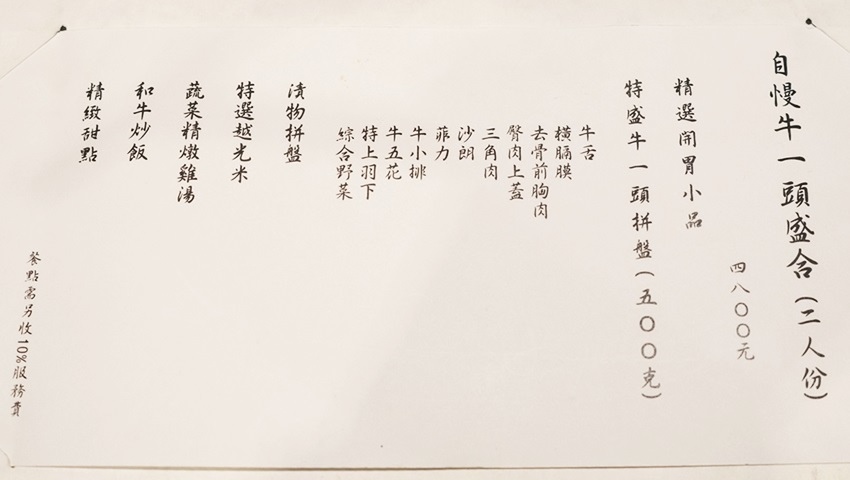 自慢牛一頭盛合(二人份)
四八〇〇元
精選開胃小品
特盛牛一頭拼盤(五〇〇克)
牛舌
橫膈膜
去骨前胸肉
臀肉上蓋
三角肉
沙朗
菲力
牛小排
牛五花
特上羽下
綜合野菜
漬物拼盤
特選越光米
蔬菜精燉雞湯
和牛炒飯
精緻甜點
餐點需另收10%服務費